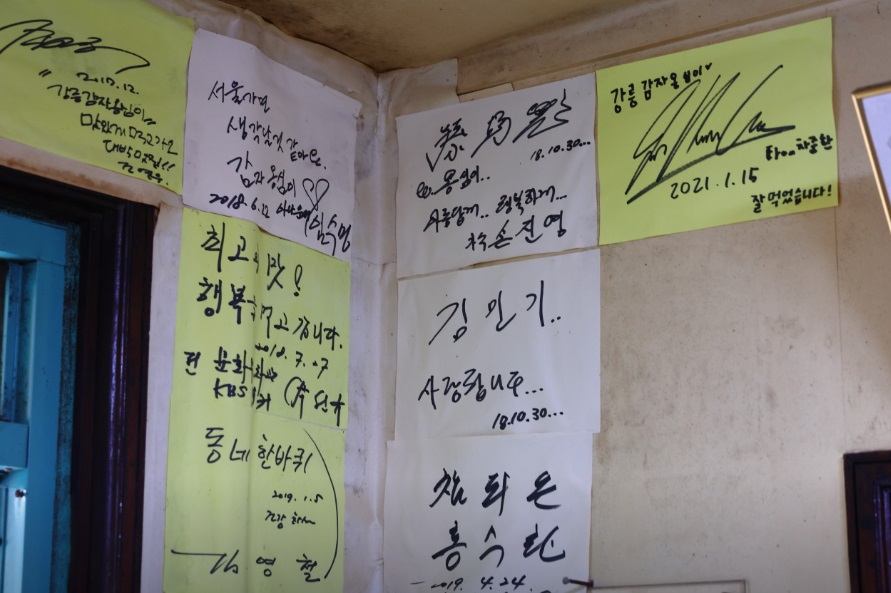 2017.12.
강릉감자옹심이
맛있게 먹고가요
대박맛집!!
서울가면
생각날것 같아요.
감자 옹심이♡
2018.6.12
임수명
최고의 맛!
행복
갑니다.
2018.7.07
전 문화
KBS
동네한바퀴
2019.1.5
건강하세
김영철
18.10.30...
옹심이..
사랑담게.. 행복하게...
손진영
김민기..
사랑합니다...
18.10.30...
챔피온
홍수환
2019.4.24
강릉감자옹심이♥
From 차준환
2021.1.15
잘 먹었습니다!